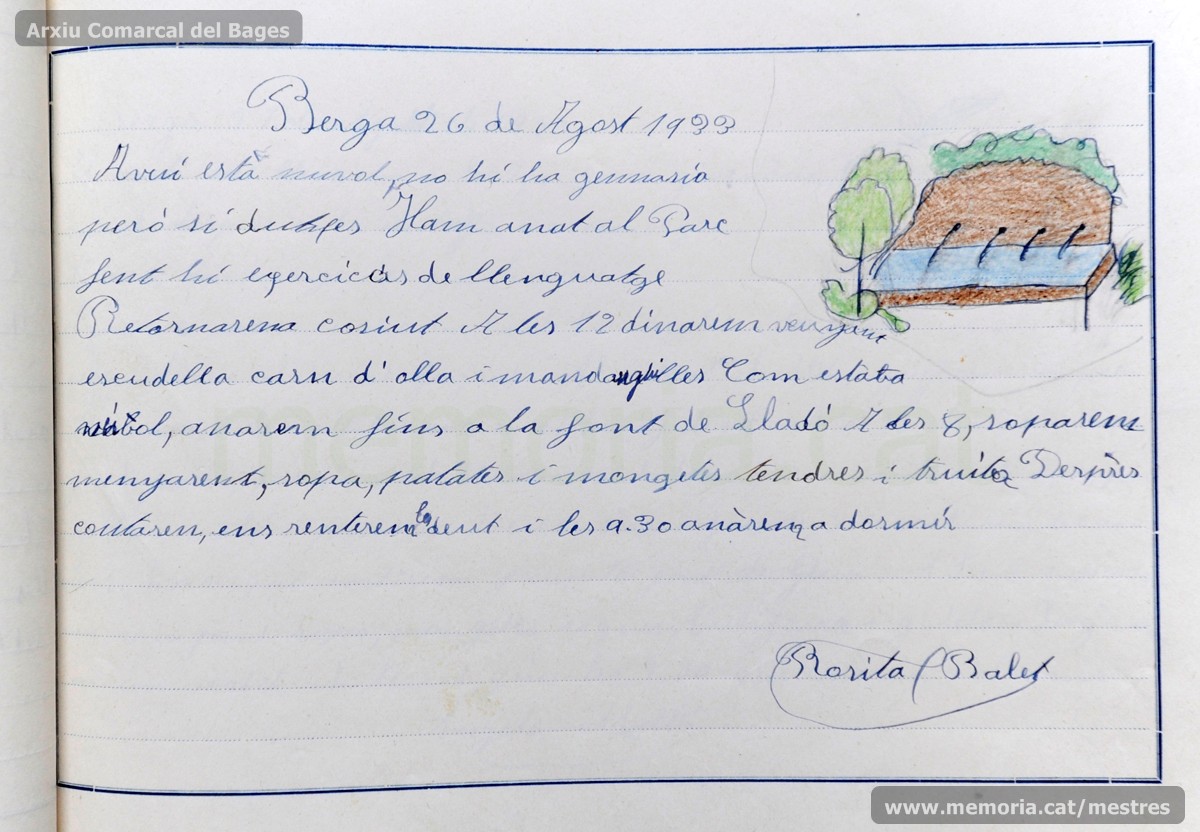 Arxiu Comarcal del Bages
Berga 26 de Agost 1933
Avui està nuvol, no hi ha gennasia
però si dutxes Ham anat al Parc
fent hi exercicis de llenguatge
Retornarena cosint A les 12 dinarem
escudella carn d'olla i mandonguilles Com estaba
anarem fins a la font de Lladó A les 8, soparem
menyarent, sopa, patates i mongetes tendres i truita Després
contaren, ens renterem la dent i les 9.30 anàrem a dormir
Rosita Balet
www.memoria.cat/mestres